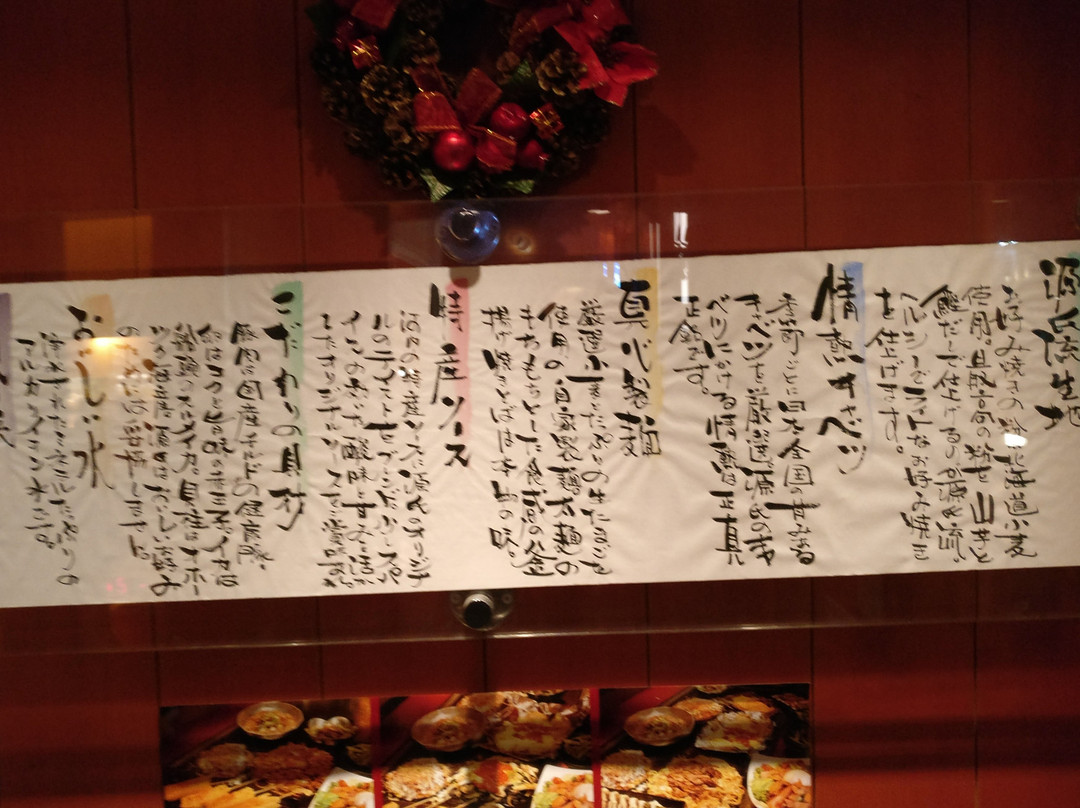 源氏生地
お好み焼きの粉は北海道小麦
使用。最高の粉を山芋と
鰹だしで仕上げるのが源氏流。
ヘルシーでライトなお好み焼き
を仕上げます。
情熱キャベツ
季節ごとに日本全国の甘みある
キャベツを厳選。源氏の
ベツにかける情熱は正真
正銘です。
真心製麺
厳選小麦とたっぷりの生たまごを
使用の自家製麺。太麺の
もちもちっとした食感の釜
揚げ焼きそばは本山の味。
特産ソース
河内の特産ソースに源氏のオリジナ
ルのテイストをブレンド。少しスパ
イシーの
したオリジナルソースをご賞味
こだわりの具材
豚肉は国産チルドの健康豚。
イカは
具材
おいしいお好み
のためには妥協しません。
おいしい水
浄水されたミネラルたっぷりの
アルカリイオン水です。